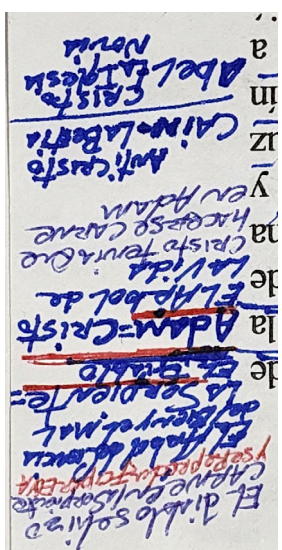 EL diablo se hizo
CARNE en la Serpiente
y se POR EVA
EL Arbol de la
del Bien y el mal
LA Serpiente=
EL Diablo
Adam=Cristo
EL Arbol de
La Vida
CRISTO TENIA QUE
hacerse CARNE
en Adam
Anti CRISTO
CAIN=La Bestia
CRISTO
Abel La Iglesia
Novia
de
la
de
na
y
uz
ín
a